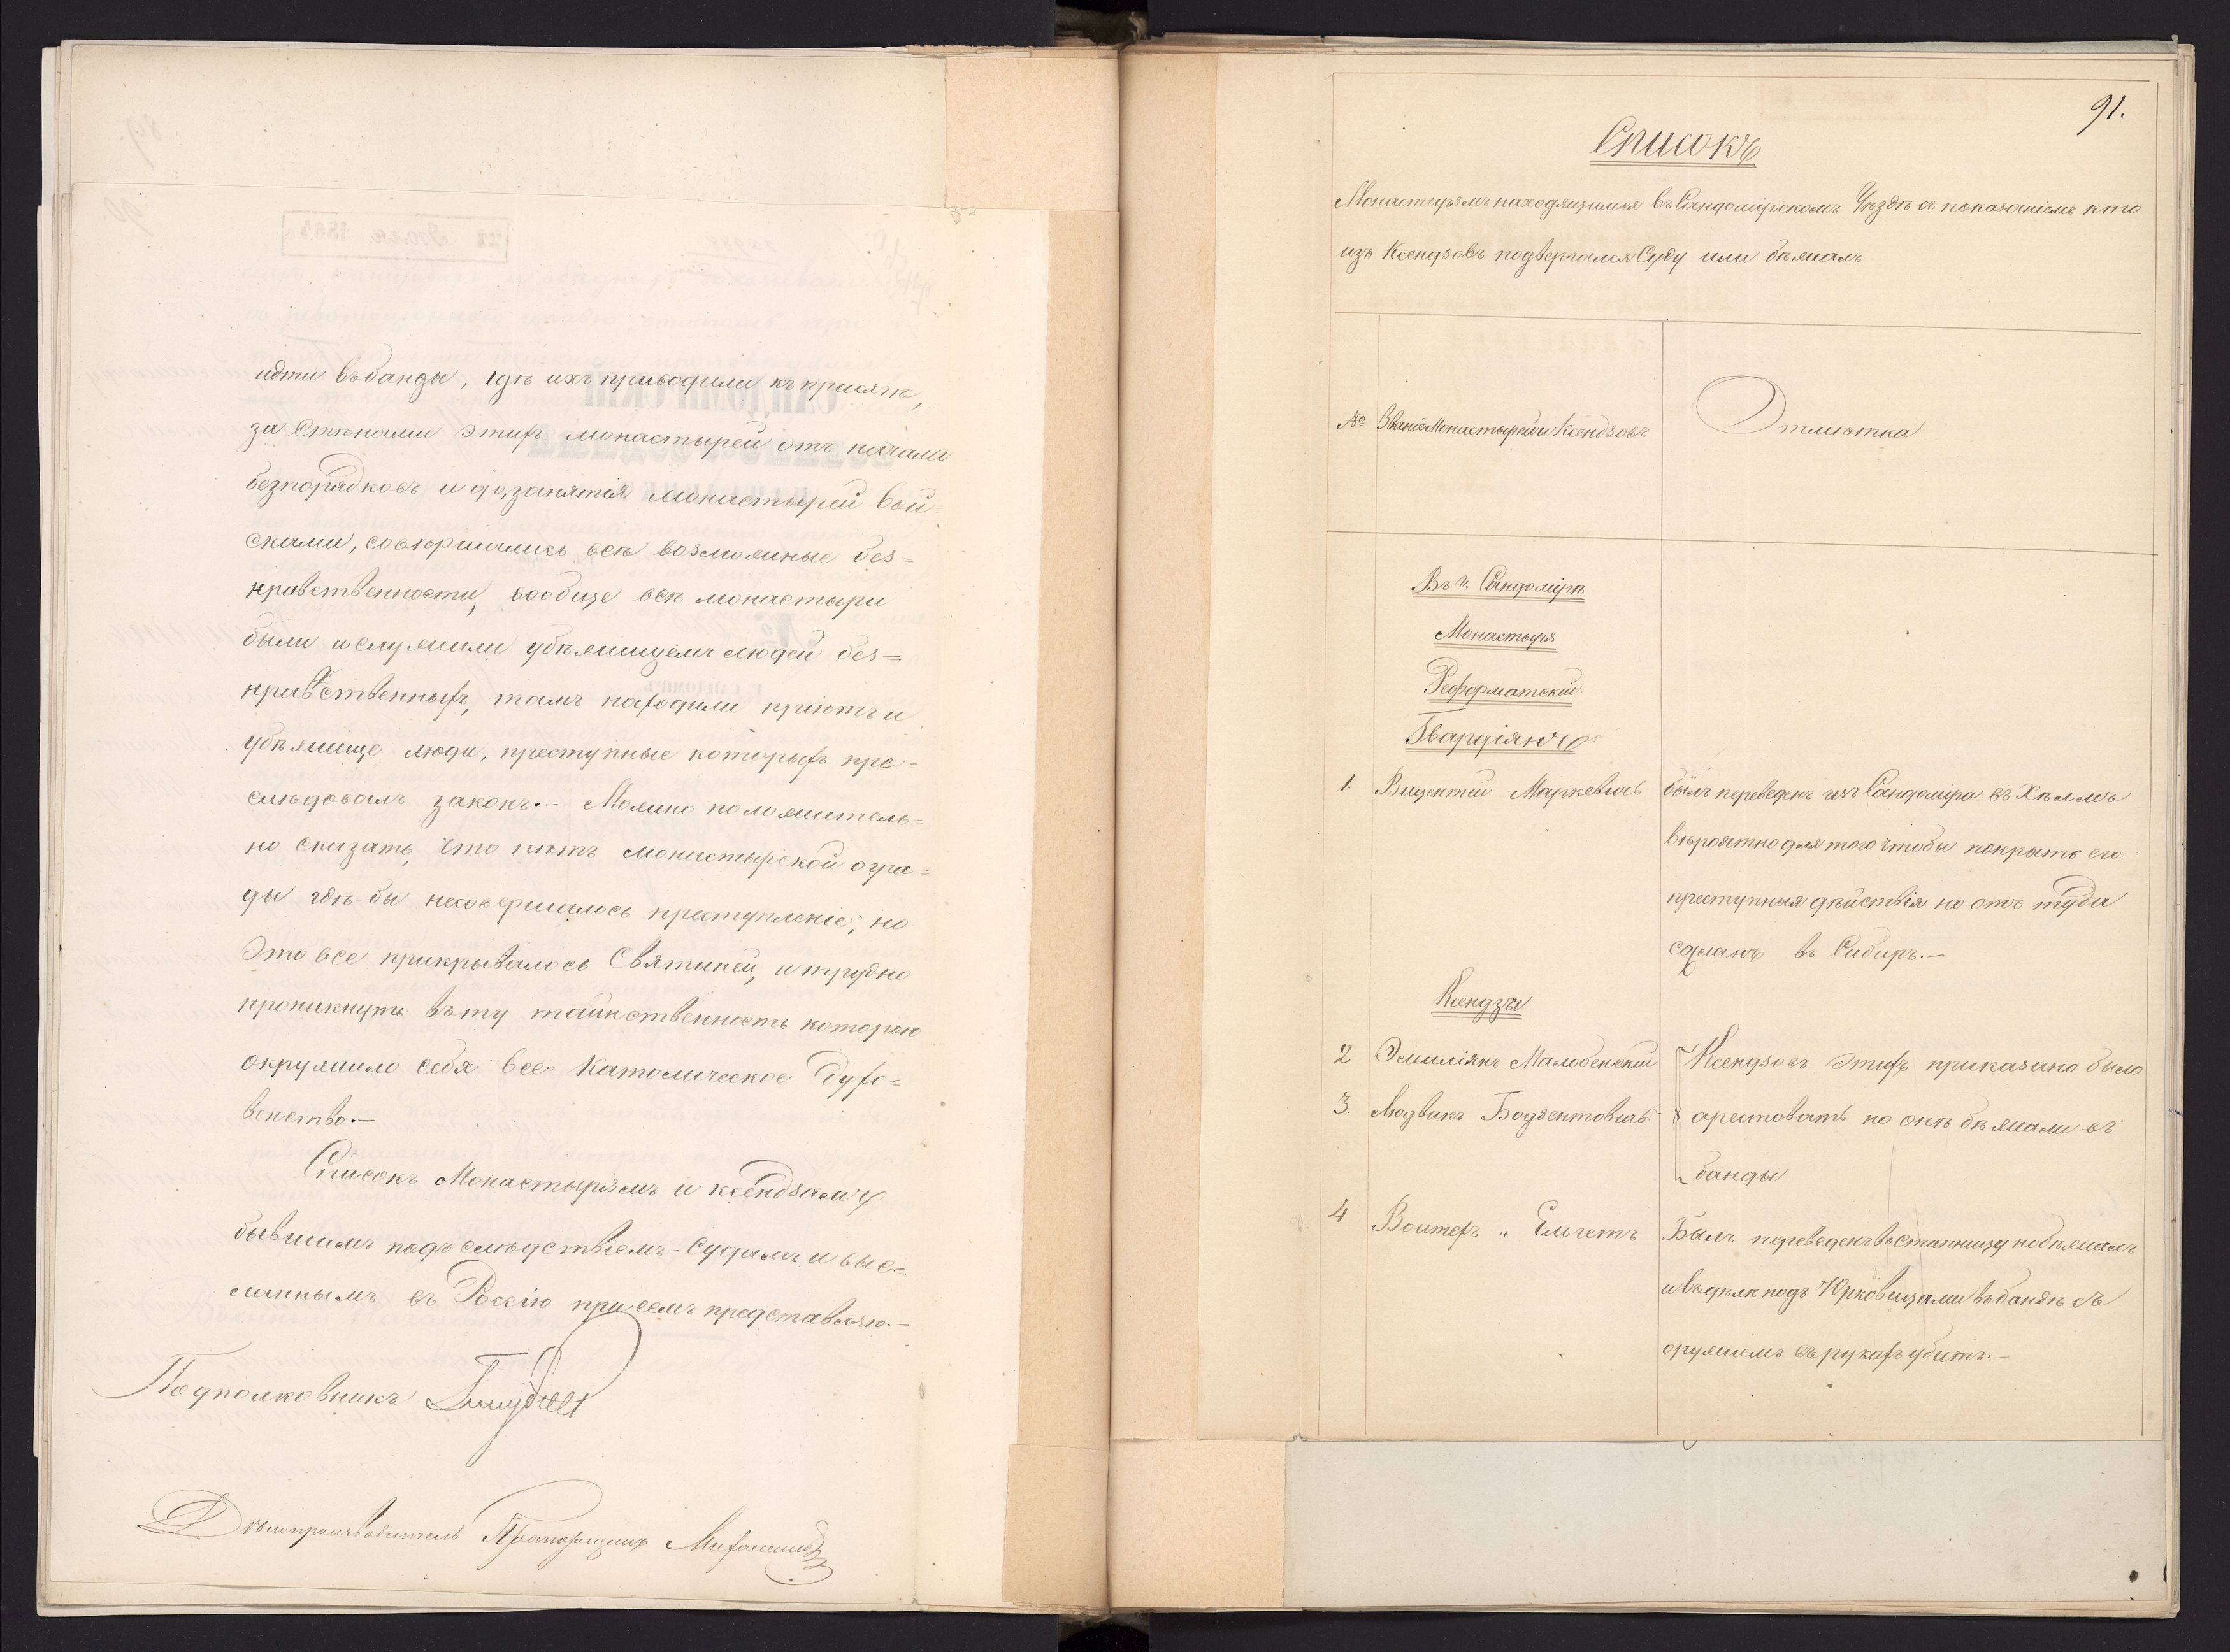 идти въ банды, гдѣ ихъ приводили къ присягѣ,
за стѣнами этихъ монастырей отъ начала
безпорядковъ и до занятія монастырей вой=
сками, совершались всѣ возможные без=
нравственности, вообще всѣ монастыри
были и служили убѣжищемъ людей без=
нравственныхъ, тамъ находили пріютъ и
убѣжище люди, преступные которыхъ пре=
слѣдовалъ законъ.— Можно положитель=
но сказать, что нѣтъ монастырской огра=
ды гдѣ бы несовершалось преступленіе, но
это все прикрывалось Святыней, и трудно
проникнуть въ ту таинственность которою
окружило себя все Католическое Духо=
венство.—
Списокъ Монастырямъ и ксендзамъ
бывшимъ подъ слѣдствіемъ-Судамъ и выс=
ланнымъ въ Россію при семъ представляю.—
Подполковникъ
Дѣлопроизводитель Прапорщикъ
91.
Списокъ
Монастырямъ находящимся въ Сандомірскомъ Уѣздѣ съ показаніемъ кто
изъ Ксендзовъ подвергался Суду или бѣжалъ
№ Званіе Монастырей и Ксендзовъ
Отмѣтка
Въ г. Сандомірѣ
Монастыря
Реформатскій
Гвардіянъ
1. Вицентій Маркевичъ былъ переведенъ изъ Сандоміра въ Хѣлмъ
вѣроятно для того чтобы покрыть его
преступныя дѣйствія но отъ туда
сосланъ въ Сибирь.—
Ксендзы
2 Эмиліянъ Малобенскій Ксендзовъ этихъ приказано было
3. Людвикъ Бодзентовичъ арестовать но онѣ бѣжали въ
банды
4 Войтехъ „ Ельгетъ Былъ переведенъ въ Стапницу но бѣжалъ
и въ дѣлѣ подъ Юрковицами въ бандѣ съ
оружіемъ въ рукахъ убитъ.—